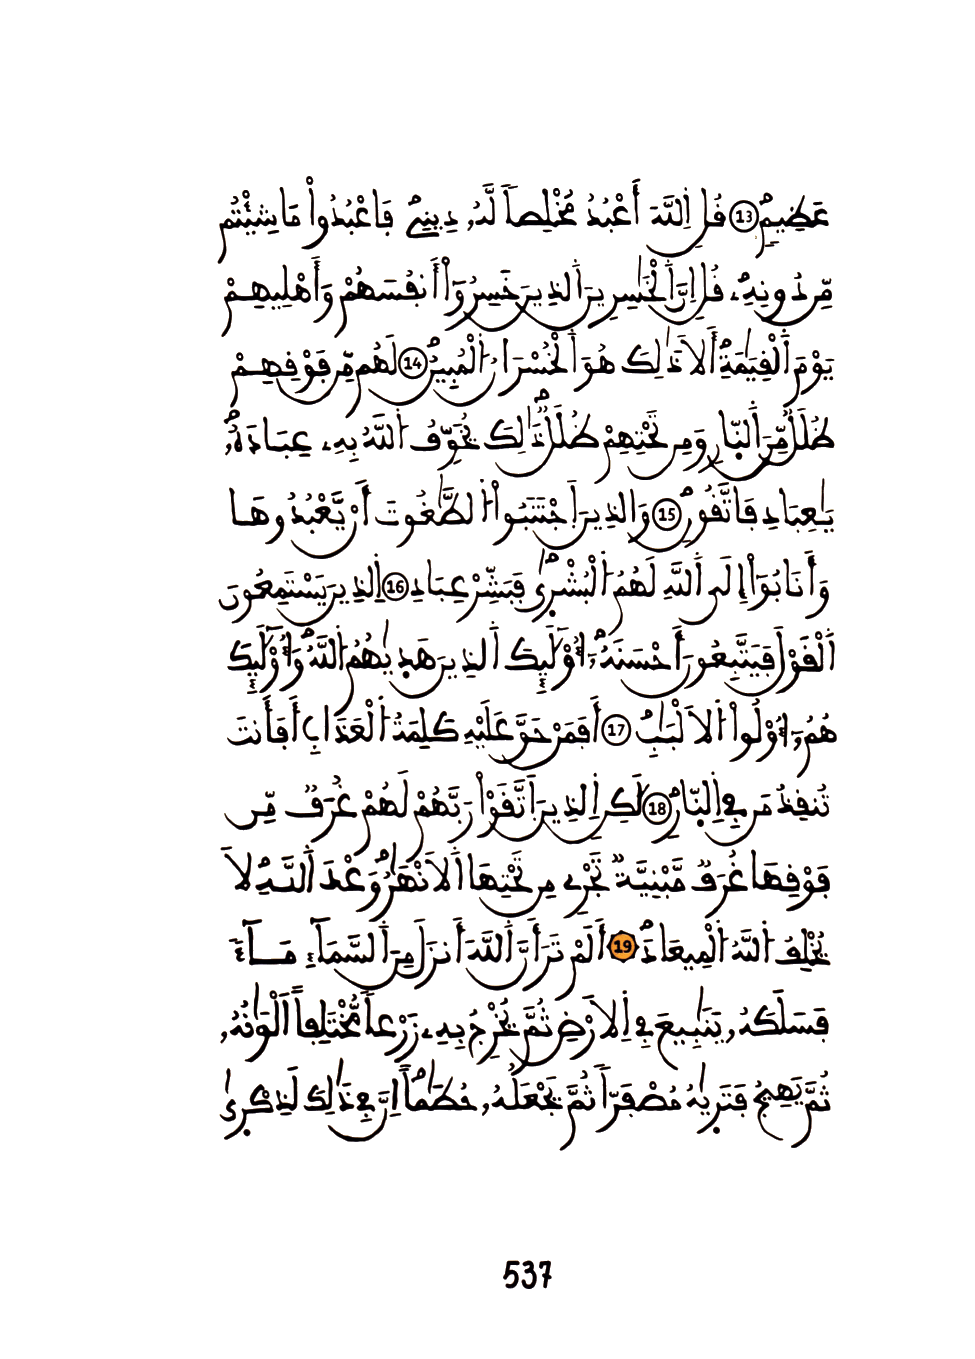 عَظِيمٍ 13 قُلِ اِللَّهَ أَعْبُدُ مُخْلِصاً لَّهُۥ دِينِے فَاعْبُدُواْ مَا شِئْتُم
مِّن دُونِهِۦ قُلِ اِنَّ اَ۬لْخَٰسِرِينَ اَ۬لذِينَ خَسِرُوٓاْ أَنفُسَهُمْ وَأَهْلِيهِمْ
يَوْمَ اَ۬لْقِيَٰمَةِ أَلَا ذَٰلِكَ هُوَ اَ۬لْخُسْرَانُ اُ۬لْمُبِينُ 14 لَهُم مِّن فَوْقِهِمْ
ظُلَلٌ مِّنَ اَ۬لنّ۪ارِ وَمِن تَحْتِهِمْ ظُلَلٌ ذَٰلِكَ يُخَوِّفُ اُ۬للَّهُ بِهِۦ عِبَادَهُۥ
يَٰعِبَادِ فَاتَّقُونِ 15 وَالذِينَ اَ۪جْتَنَبُواْ اُ۬لطَّٰغُوتَ أَنْ يَّعْبُدُوهَا
وَأَنَابُوٓاْ إِلَي اَ۬للَّهِ لَهُمُ اُ۬لْبُشْر۪ىٰ فَبَشِّرْ عِبَادِ 16 اِ۬لذِينَ يَسْتَمِعُونَ
اَ۬لْقَوْلَ فَيَتَّبِعُونَ أَحْسَنَهُۥٓ أُوْلَٰٓئِكَ اَ۬لذِينَ هَد۪يٰهُمُ اُ۬للَّهُ وَأُوْلَٰٓئِكَ
هُمُۥٓ أُوْلُواْ اُ۬لَالْبَٰبِ 17 أَفَمَنْ حَقَّ عَلَيْهِ كَلِمَةُ اُ۬لْعَذَابِ أَفَأَنتَ
تُنقِذُ مَن فِے اِ۬لنّ۪ارِ 18 لَٰكِنِ اِ۬لذِينَ اَ۪تَّقَوْاْ رَبَّهُمْ لَهُمْ غُرَفٌ مِّن
فَوْقِهَا غُرَفٌ مَّبْنِيَّةٌ تَجْرِے مِن تَحْتِهَا اَ۬لَانْهَٰرُ وَعْدَ اَ۬للَّهِ لَا
يُخْلِفُ اُ۬للَّهُ اُ۬لْمِيعَادَ 19 أَلَمْ تَرَ أَنَّ اَ۬للَّهَ أَنزَلَ مِنَ اَ۬لسَّمَآءِ مَآءً
فَسَلَكَهُۥ يَنَٰبِيعَ فِے اِ۬لَارْضِ ثُمَّ يُخْرِجُ بِهِۦ زَرْعاً مُّخْتَلِفاً اَلْوَٰنُهُۥ
ثُمَّ يَهِيجُ فَتَر۪يٰهُ مُصْفَرّاً ثُمَّ يَجْعَلُهُۥ حُطَٰماً اِنَّ فِے ذَٰلِكَ لَذِكْر۪ىٰ
537